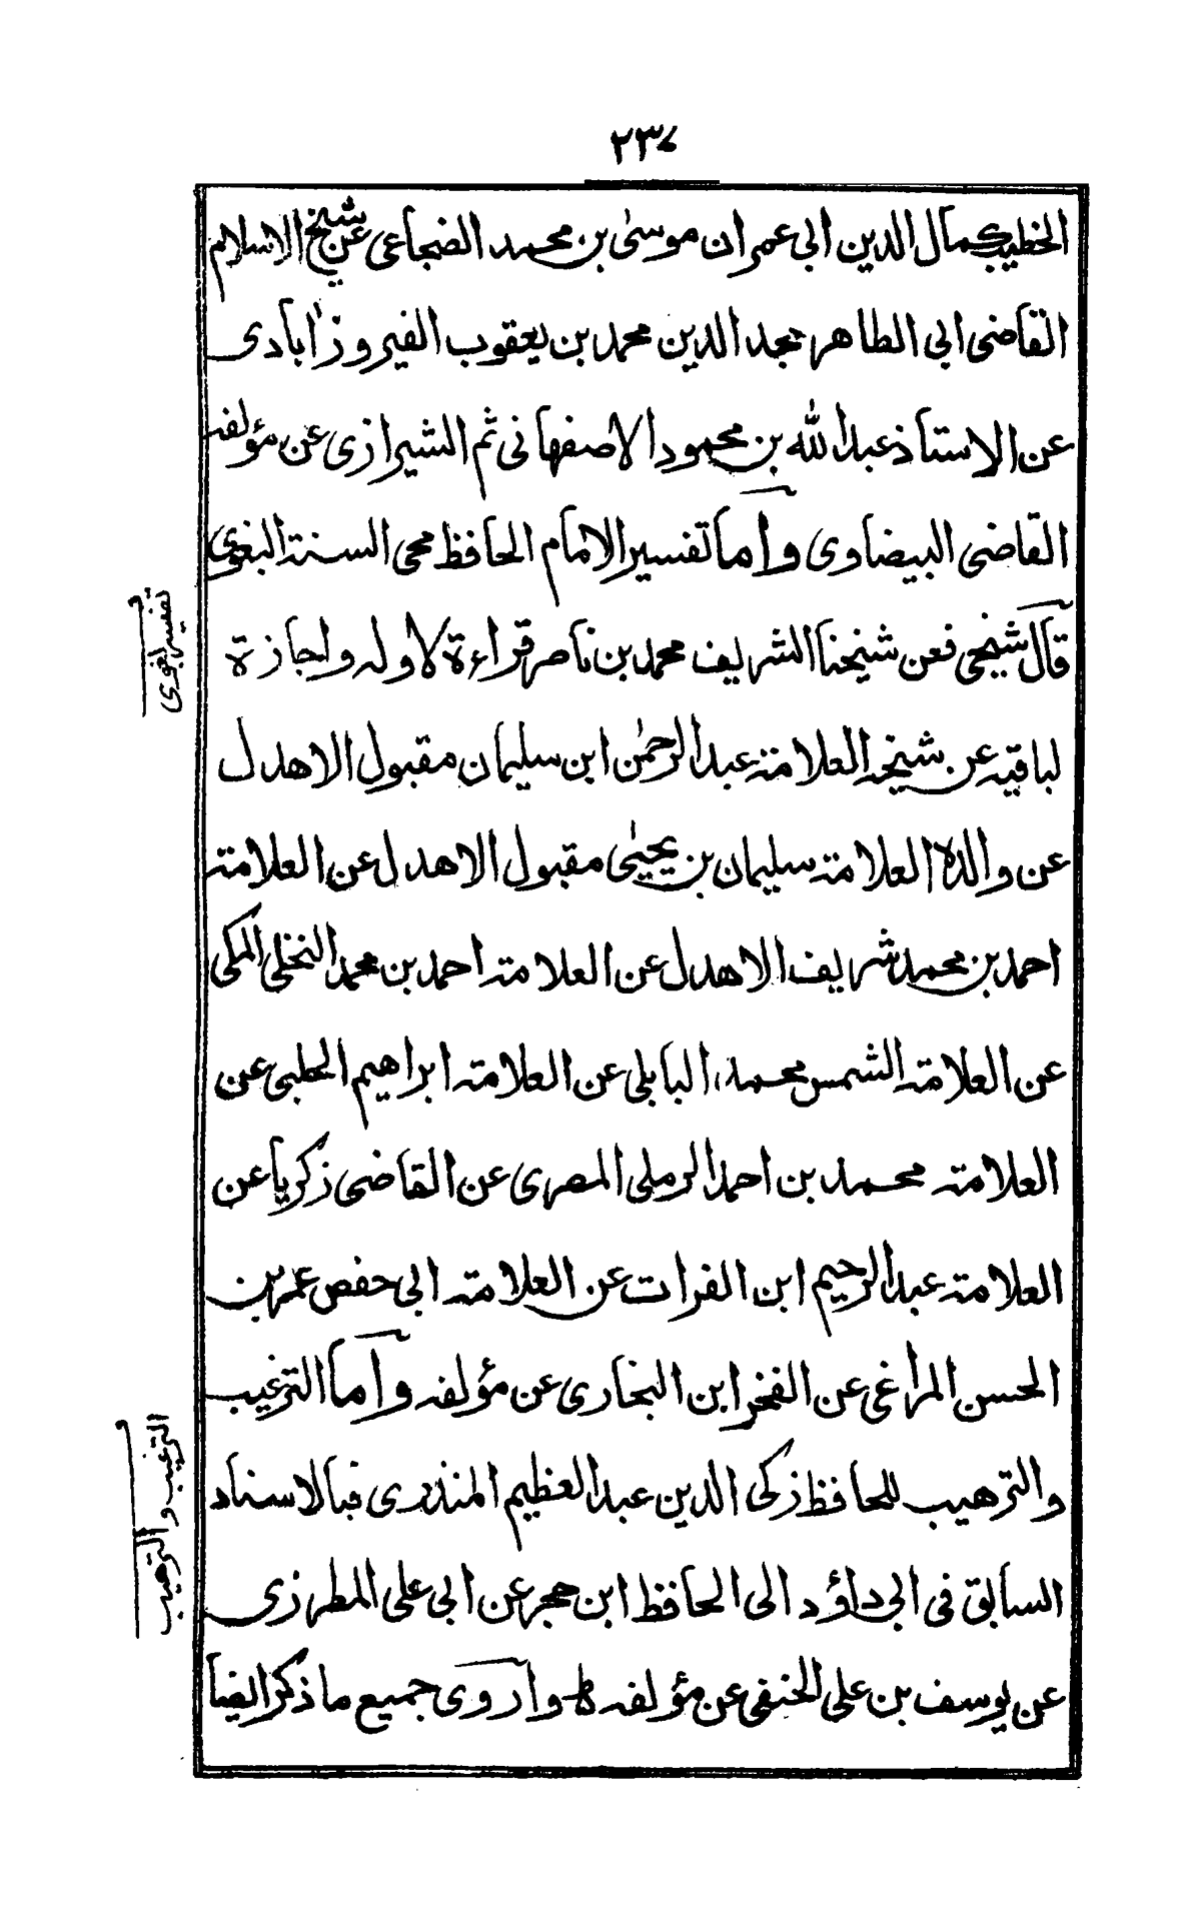 ٢٣٧
الخطيب كمال الدين ابي عمران موسىٰ بن محمد الضجاعى عن شيخ الاسلام
القاضى ابي الطاهر مجد الدين محمد بن يعقوب الفيروزاٰبادى
عن الاستاذ عبد الله بن محمود الاصفهانى ثم الشيرازى عن مؤلفه
القاضى البيضاوى وأما تفسير الامام الحافظ محى السنة البغوى
قال شيخى فعن شيخنا الشريف محمد بن ناصر قراءة لاوله واجازة
لباقيه عن شيخه العلامة عبد الرحمٰن ابن سليمان مقبول الاهدل
عن والده العلامة سليمان بن يحيىٰ مقبول الاهدل عن العلامة
احمد بن محمد شريف الاهدل عن العلامة احمد بن محمد النخلى المكى
عن العلامة الشمس محمد البابلى عن العلامة ابراهيم الحلبى عن
العلامة محمد بن احمد الرملى المصرى عن القاضى زكريا عن
العلامة عبد الرحيم ابن الفرات عن العلامة ابى حفص عمر بن
الحسن المراغى عن الفخر ابن البخارى عن مؤلفه وأما الترغيب
والترهيب للحافظ زكى الدين عبد العظيم المنذرى فبالاسناد
السابق فى ابى داؤد الى الحافظ ابن حجر عن ابى على المطرزى
عن يوسف بن على الحنفى عن مؤلفه ط واروى جميع ما ذكر ايضا
تفسير البغوى
الترغيب و الترهيب